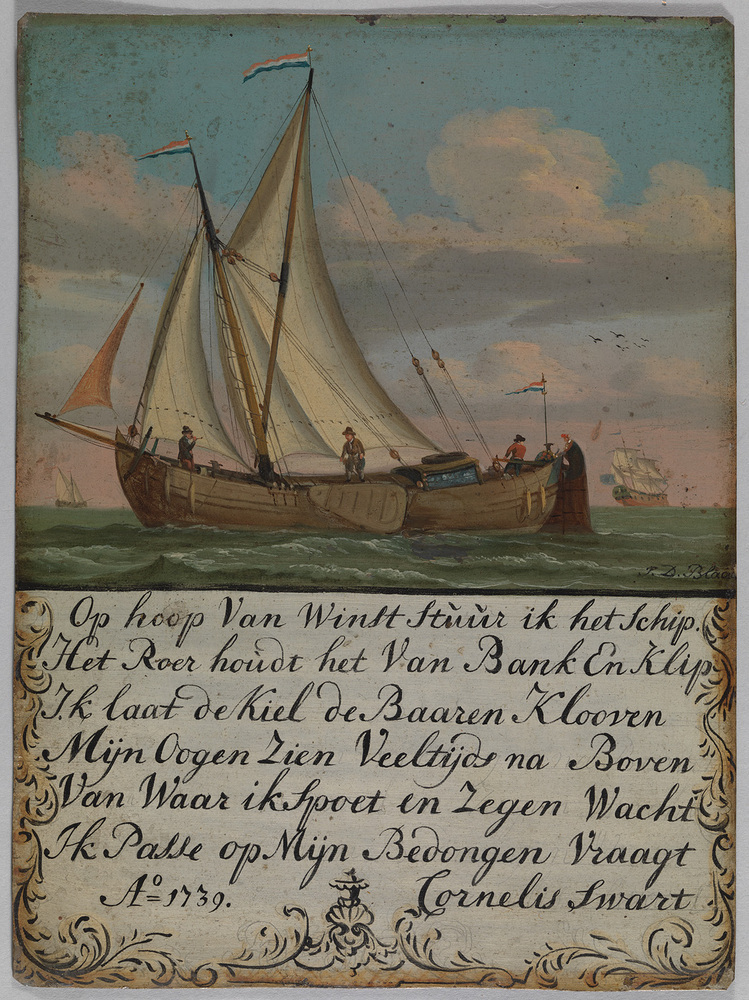 J. D. Blaauw
Op hoop Van Winst Stuur ik het Schip.
Het Roer houdt het Van Bank En Klip
Ik laat de Kiel de Baaren Klooven
Mijn Oogen Zien Veeltijds na Boven
Van Waar ik Spoet en Zegen Wacht
Ik Passe op Mijn Bedongen Vraagt
Ao 1739. Cornelis Swart